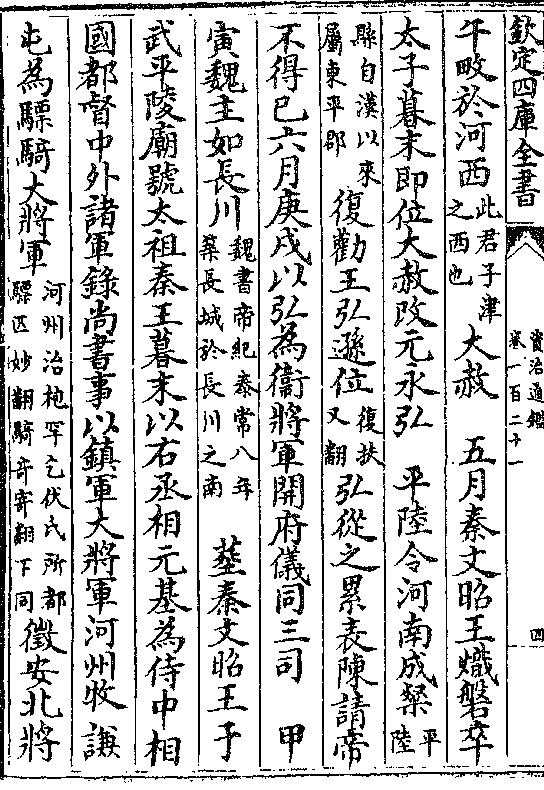 欽定四庫全書
資治通鑑
卷一百二十一
四
午畋於河西此君子津之西也大赦　五月秦文昭王熾磐卒
太子暮末即位大赦改元永弘　平陸令河南成粲平陸
縣自漢以來屬東平郡復勸王弘遜位復扶又翻弘從之累表陳請帝
不得已六月庚戌以弘為衞將軍開府儀同三司　甲
寅魏主如長川魏書帝紀泰常八年築長城於長川之南　葬秦文昭王于
武平陵廟號太祖秦王暮末以右丞相元基為侍中相
國都督中外諸軍錄尚書事以鎮軍大將軍河州牧謙
屯為驃騎大將軍河州治枹罕乞伏氏所都驃匹妙翻騎奇寄翻下同徵安北將